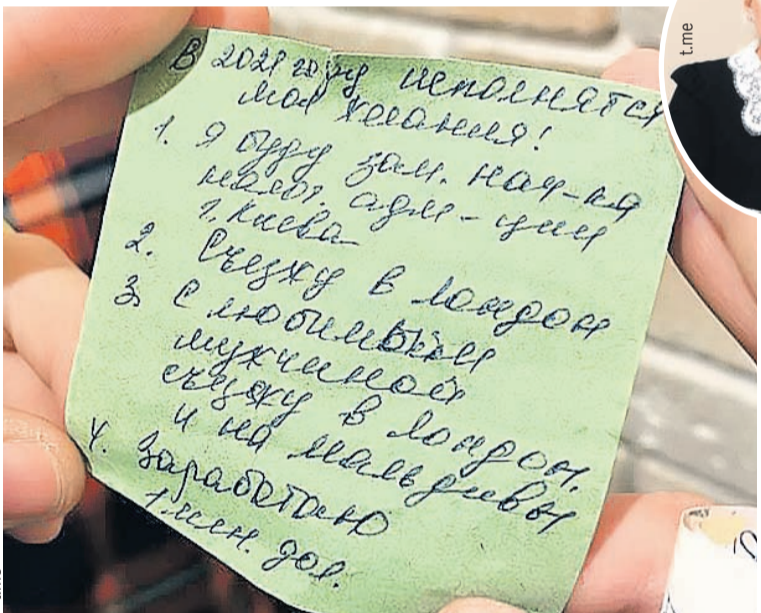 В 2021 году исполнятся
мои желания!
1. Я буду зам. нач-ка
налог. адм-ции
г. Киева
2. Съезжу в Лондон
3. С любимым
мужчиной
съезжу в Лондон,
и на Мальдивы
4. Заработаю
1 млн. дол.
t.me